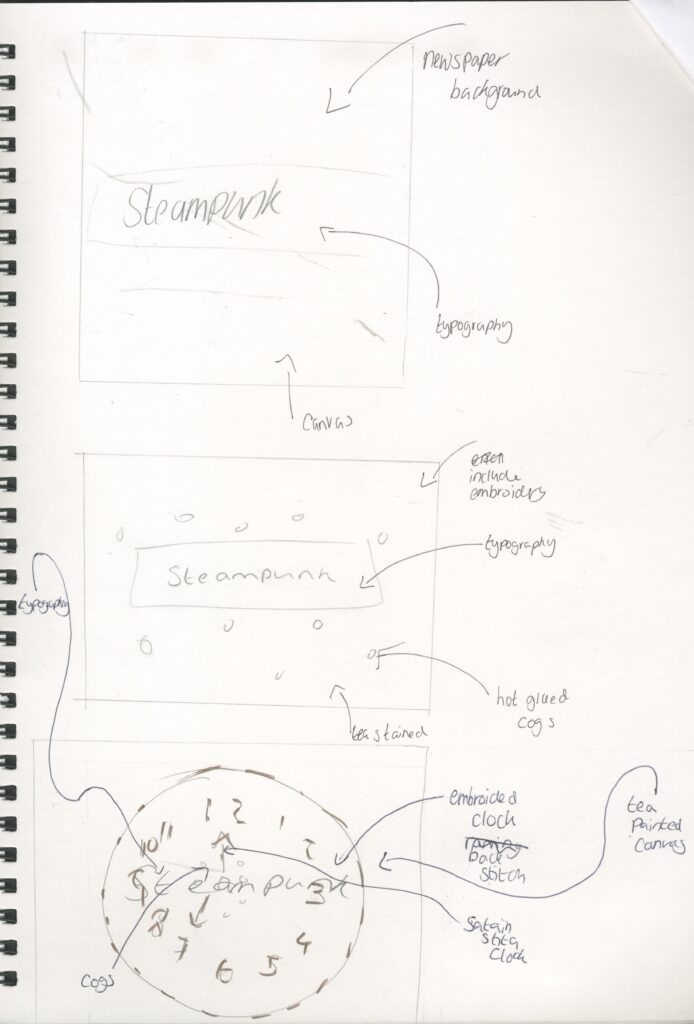 newspaper
background
Steampunk
typography
Canvas
include
embroidery
typography
Steampunk
typography
hot glued
cogs
tea stained
embroided
clock
back
stitch
tea
Painted
Canvas
12
1
2
3
4
5
6
7
8
9
10
11
Steampunk
Satain
stitq
Clock
Cogs